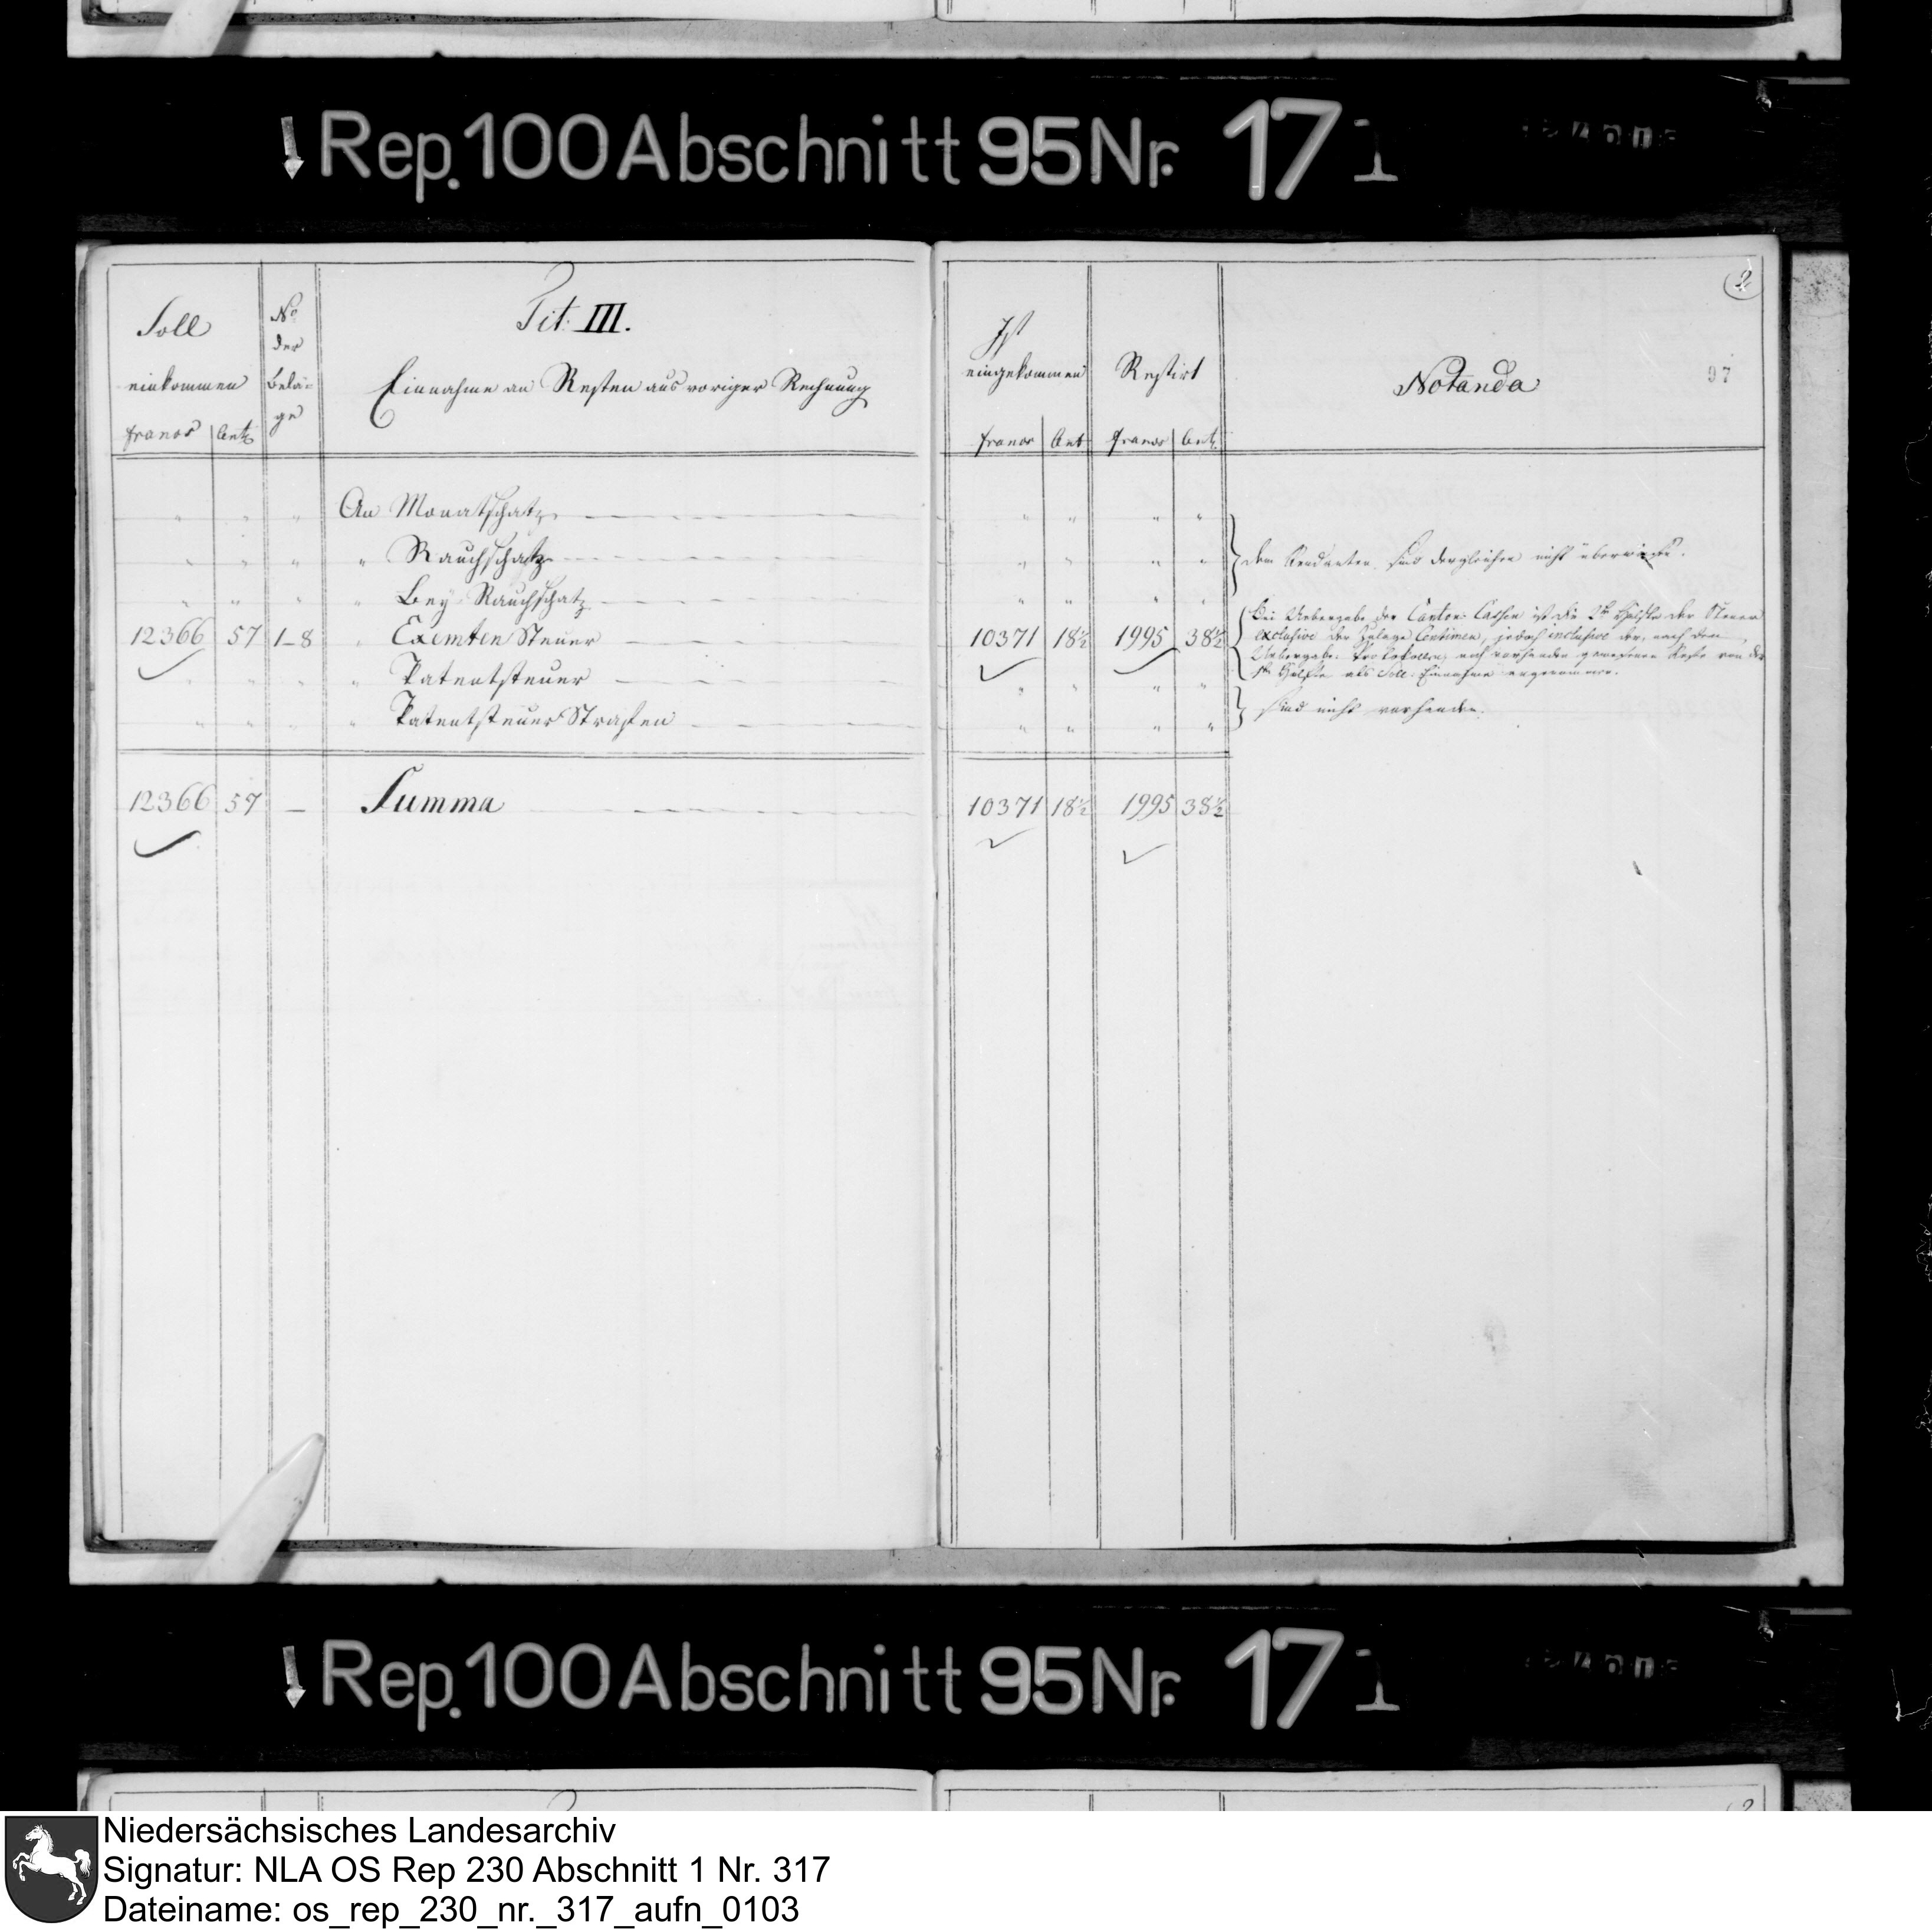 Rep. 100 Abschnitt 95 Nr. 17 1
2
97
Soll
einkommen
francs Cent
No
der
Belä-
ge
Tit: III.
Einnahme an Resten aus voriger Rechnung
Ist
eingekommen
francs Cent
Restirt
francs Cent
Notanda
" " " An Monatschatz " " " "
" " " " Rauchschatz " " " "
dem Rendanten sind dergleichen nicht überwiesen.
" " " " Bey Rauchschatz " " " "
12366 57 1-8 " Exemten Steuer 10371 18½ 1995 38½
Bei Uebergabe der Canton Cassen ist die 2te Hälfte der Steuer
exclusive der Zulage Centimen, jedoch inclusive der, nach dem
Uebergabe Protokollen noch vorhanden gewesenen Reste von der
1ten Hälfte als Soll Einnahme angenommen.
" " " " Patentsteuer " " " "
" " " " Patentsteuer Strafen " " " "
sind nicht vorhanden.
12366 57 — Summa 10371 18½ 1995 38½
Rep. 100 Abschnitt 95 Nr. 17 1
2
Niedersächsisches Landesarchiv
Signatur: NLA OS Rep 230 Abschnitt 1 Nr. 317
Dateiname: os_rep_230_nr._317_aufn_0103